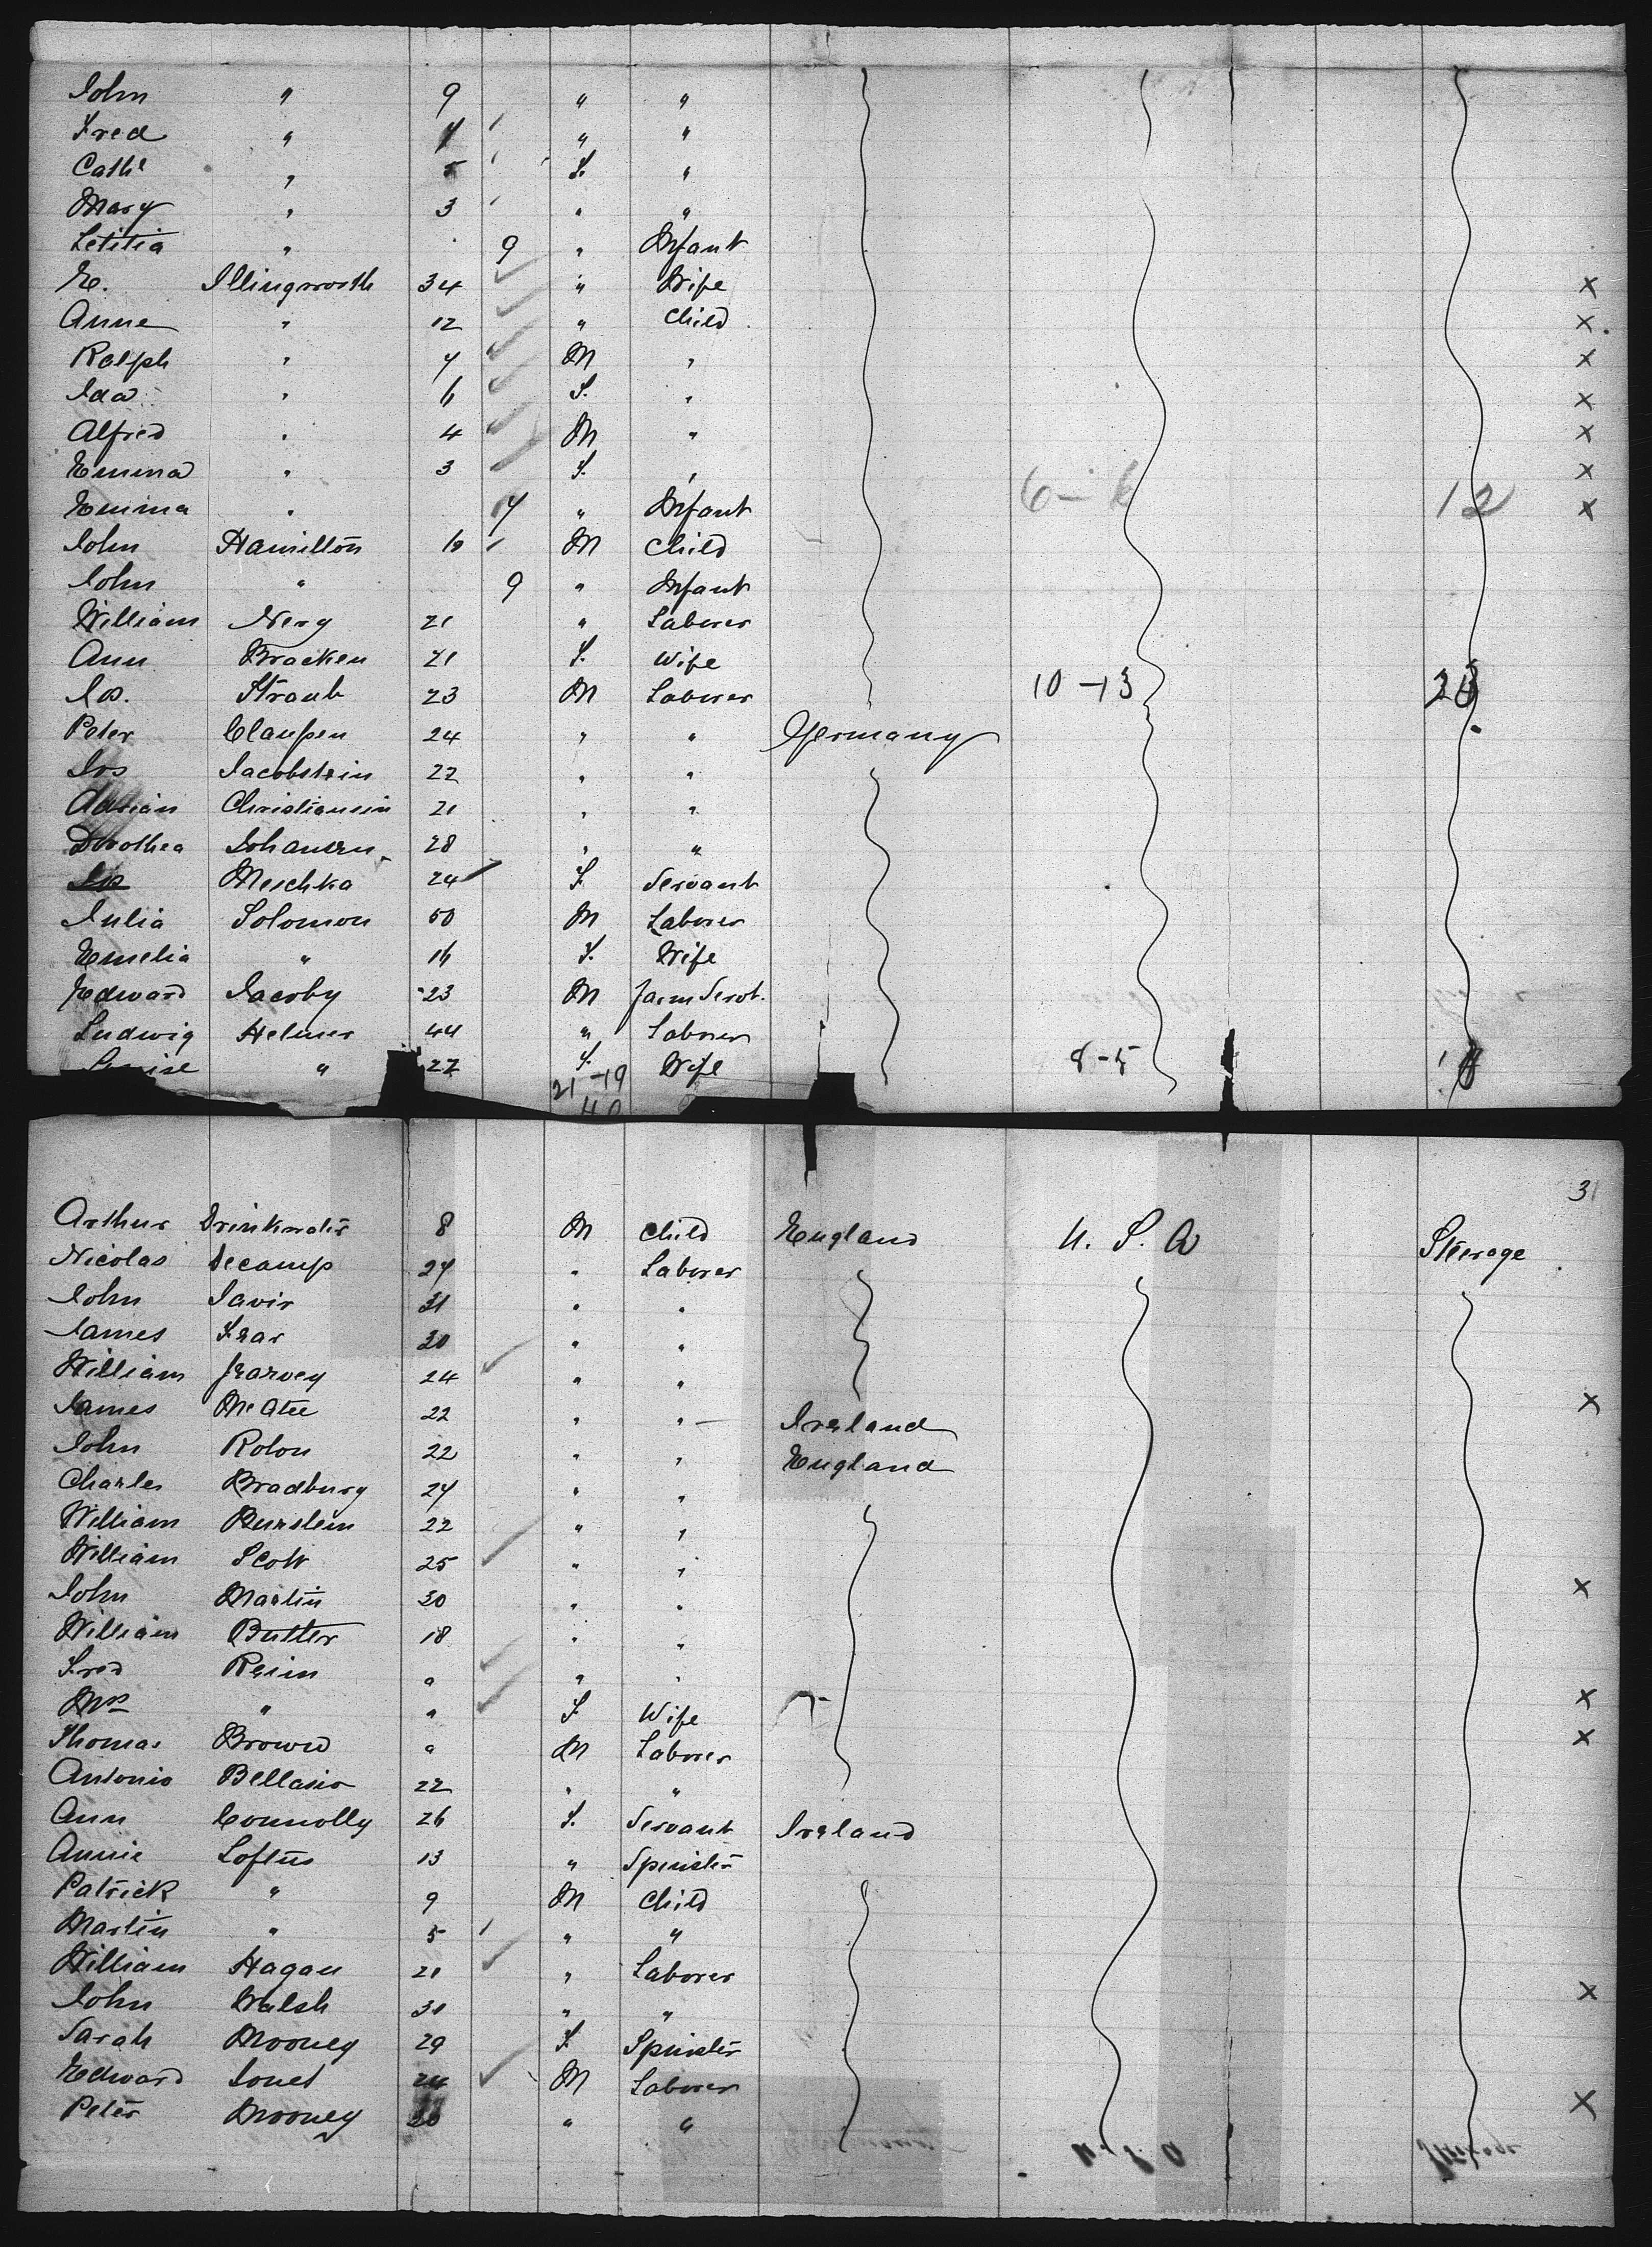 John " 9 " "
Fred " 7 " "
Cathe " 5 F. "
Mary " 3 " "
Letitia " 9 " Infant
E. Illingworth 34 " Wife X
Anne " 12 " Child X
Ralph " 7 M " X
Ida " 6 F. " X
Alfred " 4 M " X
Emma " 3 F. " X
Emma " 7 " Infant 6 - 6 12 X
John Hamilton 10 M Child
John " 9 " Infant
William Nery 21 " Laborer
Ann Bracken 21 F. Wife
Jos. Straub 23 M Laborer 10 - 13 23
Peter Claussen 24 " " Germany
Jos Jacobstein 22 " "
Adrian Christiansin 21 " "
Dorothea Johansen 28 " "
Meschka 24 F Servant
Julia Solomon 50 M Laborer
Emelia " 16 F. Wife
Edward Jacoby 23 M Farm Servt.
Ludwig Helmer 44 " Laborer
Louise " 22 F. Wife 8 - 5
21 - 19
40
31
Arthur Drinkwater 8 M Child England U. S. A Steerage
Nicolas Decamp 27 " Laborer
John Davir 31 " "
James Fear 30 " "
William Garvey 24 " "
James McAtee 22 " " Ireland X
John Rolon 22 " " England
Charles Bradbury 27 " "
William Burstein 22 " "
William Scott 25 " "
John Martin 30 " " X
William Butter 18 " "
Fred Rein " " "
Mrs " " F Wife X
Thomas Brown " M Laborer X
Antonio Bellasio 22 " "
Ann Connolly 26 F. Servant Ireland
Annie Loftus 13 " Spinster
Patrick " 9 M Child
Martin " 5 " "
William Hagan 21 " Laborer
John Walsh 30 " " X
Sarah Mooney 29 F Spinster
Edward Jones 24 M Laborer
Peter Mooney 20 " " X
U. S. A Steerage